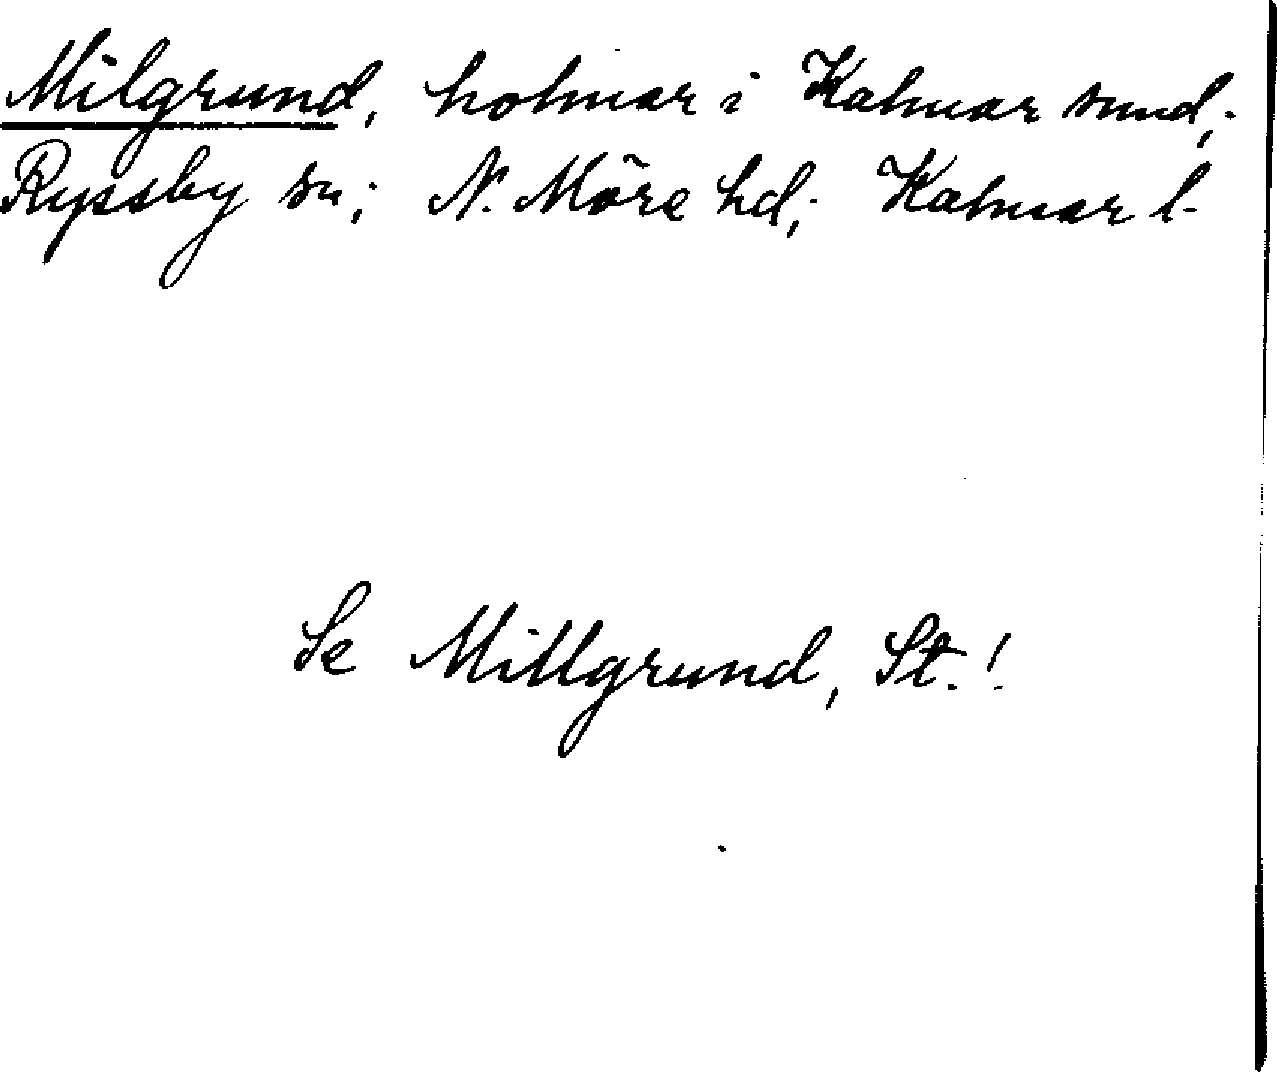 Milgrund, holmar i Kalmar sund;
Ryssby sn; N. Möre hd; Kalmar l.
Se Millgrund, St.!